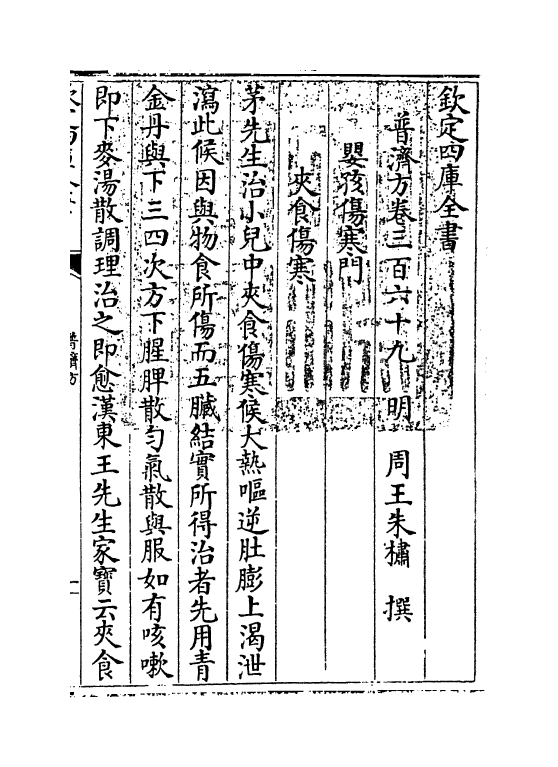 欽定四庫全書
普濟方卷三百六十九　明　周王朱橚　撰
嬰孩傷寒門
夾食傷寒
茅先生治小兒中夾食傷寒候大熱嘔逆肚膨上渴泄
瀉此候因與物食所傷而五臟結實所得治者先用青
金丹與下三四次方下腥脾散勻氣散與服如有咳嗽
即下麥湯散調理治之即愈漢東王先生家寶云夾食
普濟方